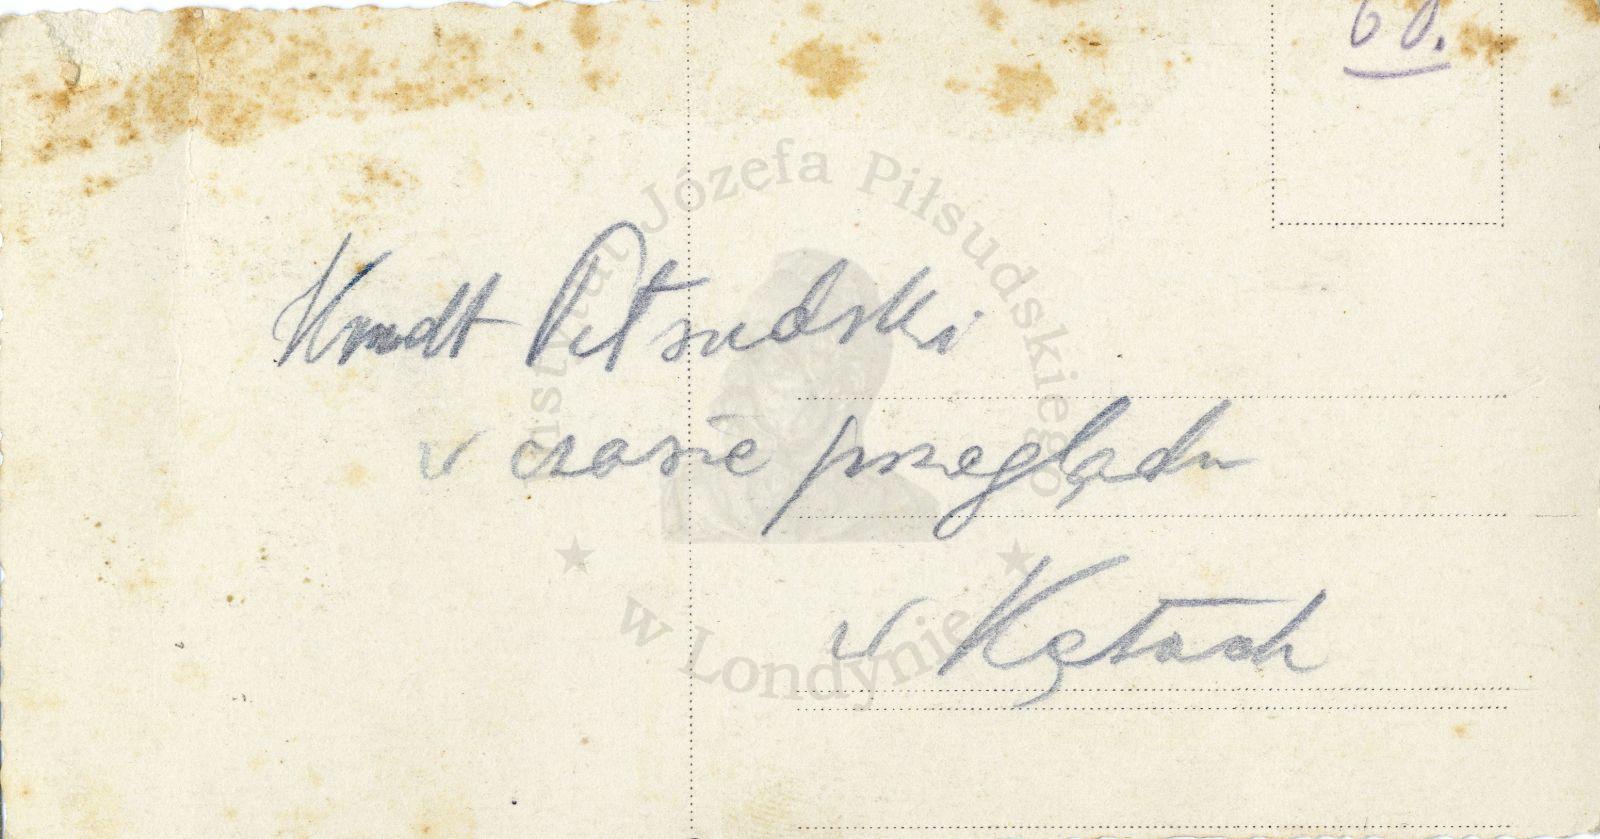 60.
Kmdt Piłsudski
w czasie przeglądu
w Kętach
Instytut Józefa Piłsudskiego
w Londynie